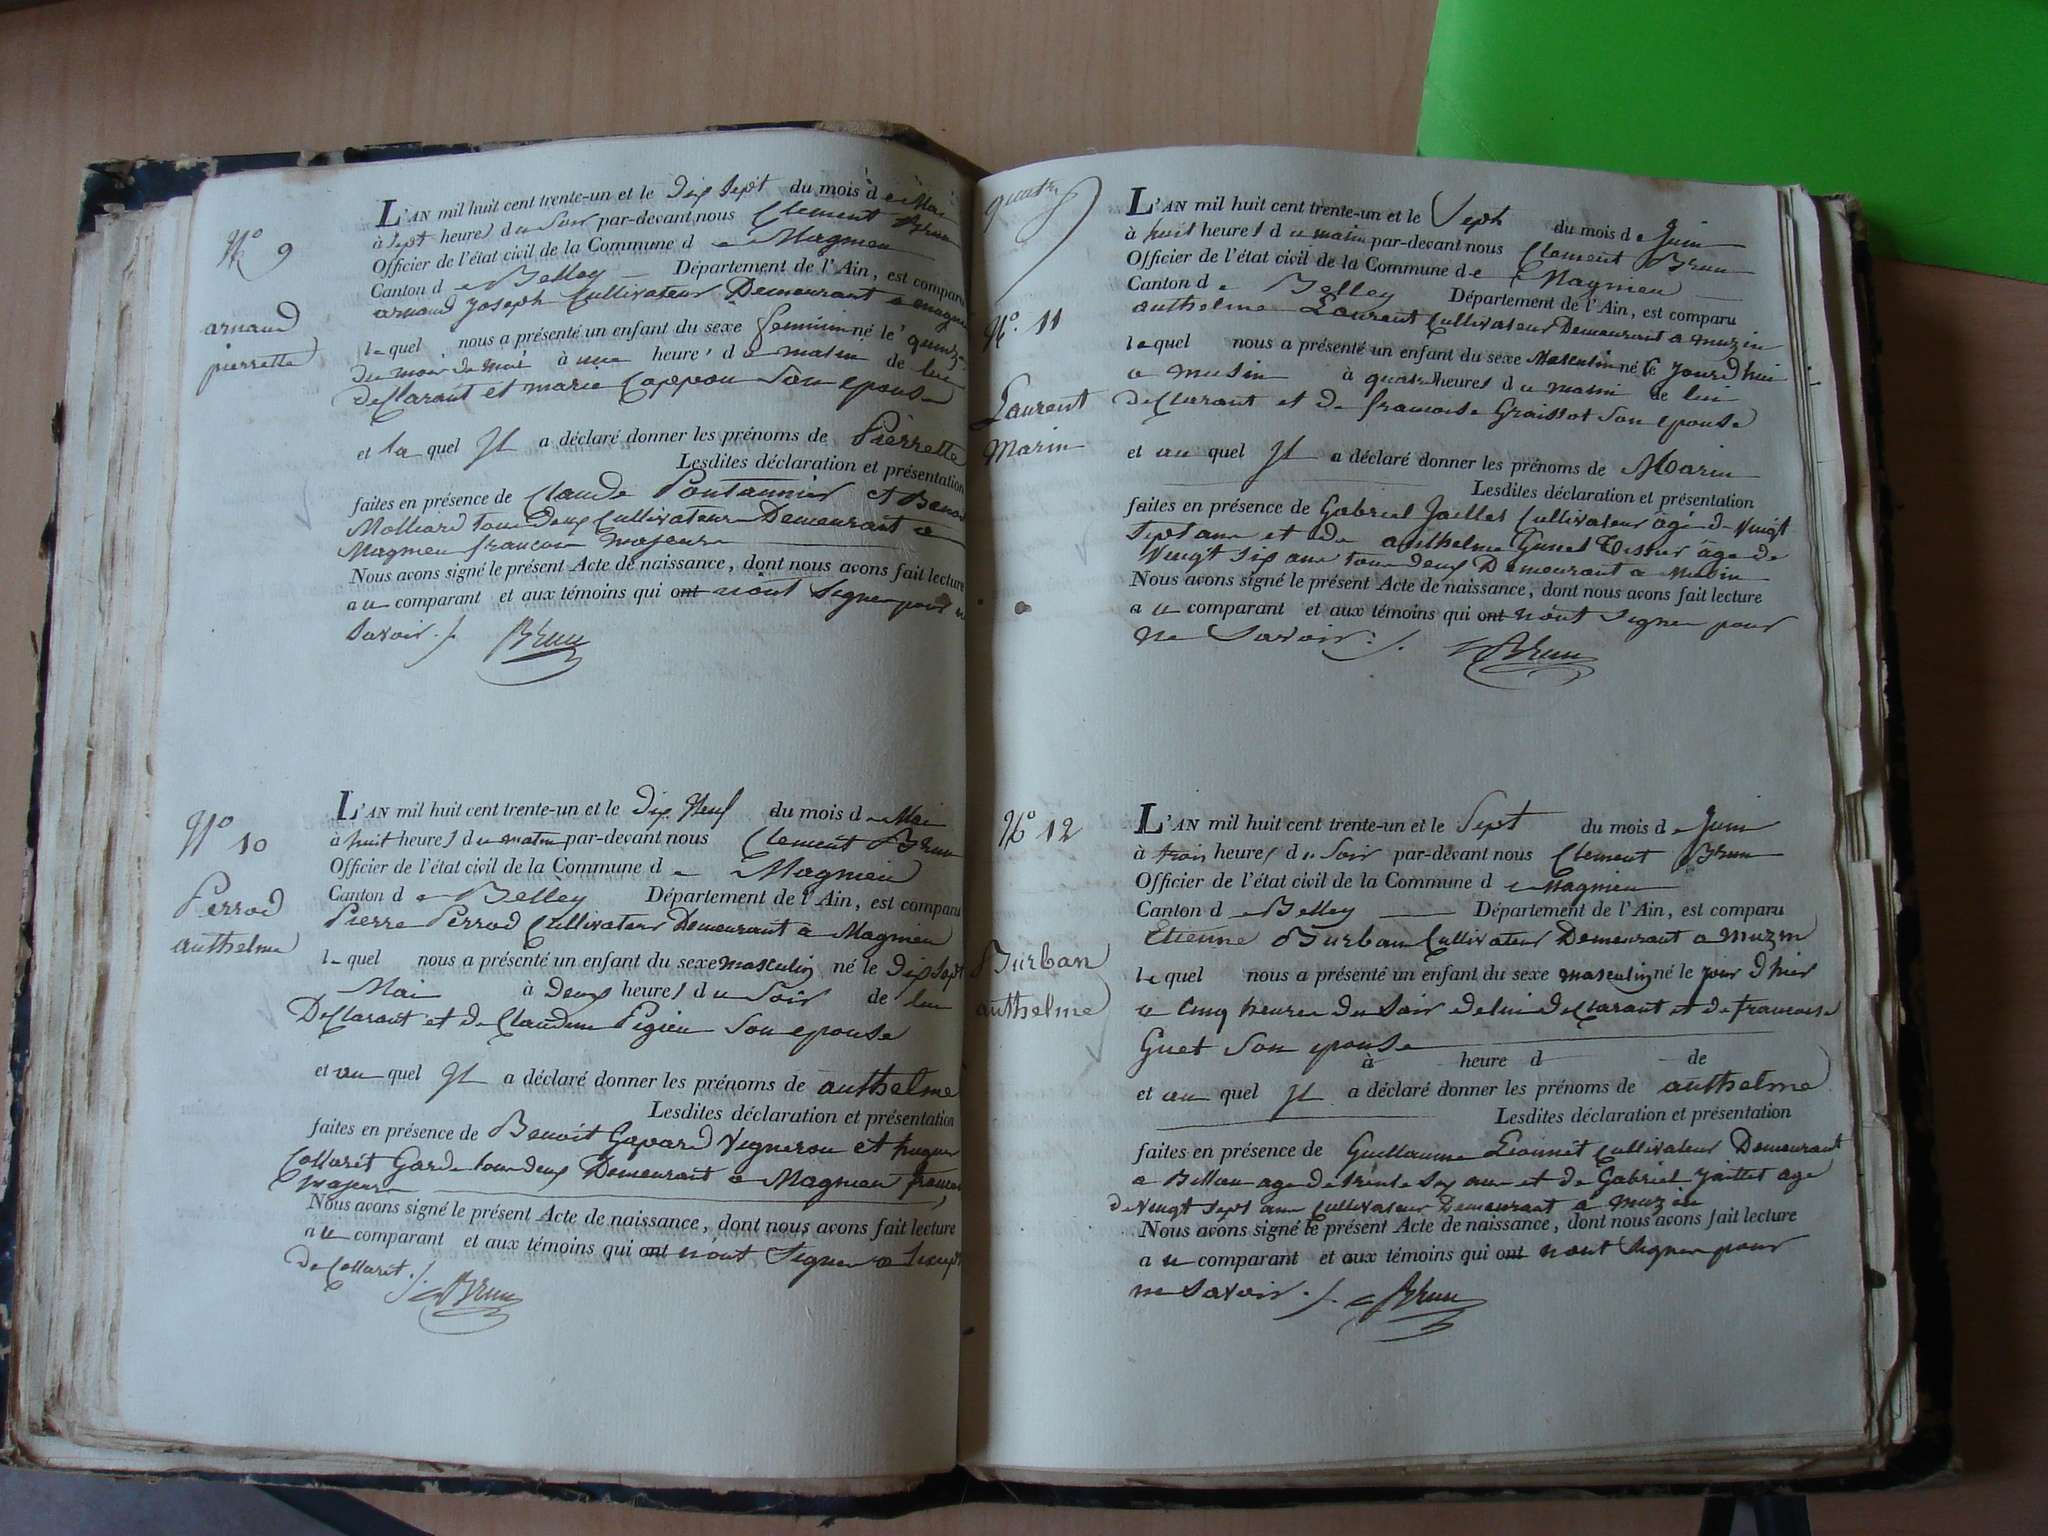 N° 9
arnaud
pierrette
L'AN mil huit cent trente-un et le Dix Sept du mois de Mai
à Sept heures du Soir par-devant nous Clement Brun
Officier de l'état civil de la Commune de Magnieu
Canton de Belley Département de l'Ain, est comparu
arnaud Joseph Cultivateur Demeurant a magnieu
lequel nous a présenté un enfant du sexe feminin né le quinze
du mois de mai à une heure du matin de lui
declarant et marie Cappon Son epouse
et la quel Jl a déclaré donner les prénoms de Pierrette
Lesdites déclaration et présentation
faites en présence de Claude Pontannier et Benoit
Molliard tous deux Cultivateurs Demeurant a
Magnieu francois majeurs
Nous avons signé le présent Acte de naissance, dont nous avons fait lecture
au comparant et aux témoins qui ont n'ont Signer pour ne
Savoir ./. Brun
N° 10
Perrod
anthelme
L'AN mil huit cent trente-un et le Dix Neuf du mois de Mai
à huit heures du matin par-devant nous Clement Brun
Officier de l'état civil de la Commune de Magnieu
Canton de Belley Département de l'Ain, est comparu
Pierre Perrod Cultivateur Demeurant a Magnieu
lequel nous a présenté un enfant du sexe masculin né le Dix Sept
Mai à Deux heures du Soir de lui
Declarant et de Claudine Pigieu Son epouse
et au quel Jl a déclaré donner les prénoms de anthelme
Lesdites déclaration et présentation
faites en présence de Benoit Gavard Vigneron et hugue
Collaret Garde tous deux Demeurant a Magnieu francois
majeurs
Nous avons signé le présent Acte de naissance, dont nous avons fait lecture
au comparant et aux témoins qui ont n'ont Signer a
de Collaret ./. Brun
quatre
N° 11
Laurent
Marin
L'AN mil huit cent trente-un et le Sept du mois de Juin
à huit heures du matin par-devant nous Clement Brun
Officier de l'état civil de la Commune de Magnieu
Canton de Belley Département de l'Ain, est comparu
anthelme Laurent Cultivateur Demeurant a muzin
lequel nous a présenté un enfant du sexe Masculin né le jourdhui
a musin à quatre heures du matin de lui
declarant et de francoise Graissot Son epouse
et au quel Jl a déclaré donner les prénoms de Marin
Lesdites déclaration et présentation
faites en présence de Gabriel Jaillet Cultivateur âgé de Vingt
Sept ans et de anthelme Gunet Tissier âge de
Vingt Six ans tous deux Demeurant a Musin
Nous avons signé le présent Acte de naissance, dont nous avons fait lecture
au comparant et aux témoins qui ont n'ont Signer pour
ne Savoir ./. Brun
N° 12
Burban
anthelme
L'AN mil huit cent trente-un et le Sept du mois de Juin
à trois heures du Soir par-devant nous Clement Brun
Officier de l'état civil de la Commune de Magnieu
Canton de Belley Département de l'Ain, est comparu
Etienne Burban Cultivateur Demeurant a muzin
lequel nous a présenté un enfant du sexe masculin né le jour d'hier
a Cinq heures du Soir de lui declarant et de francoise
Guet Son epouse
à heure d de
et au quel Jl a déclaré donner les prénoms de anthelme
Lesdites déclaration et présentation
faites en présence de Guillaume Lionnet Cultivateur Demeurant
a Billieu age de trente Six ans et de Gabriel Jaillet age
de Vingt Sept ans Cultivateur Demeurant a muzin
Nous avons signé le présent Acte de naissance, dont nous avons fait lecture
au comparant et aux témoins qui ont n'ont Signer pour
ne Savoir ./. Brun